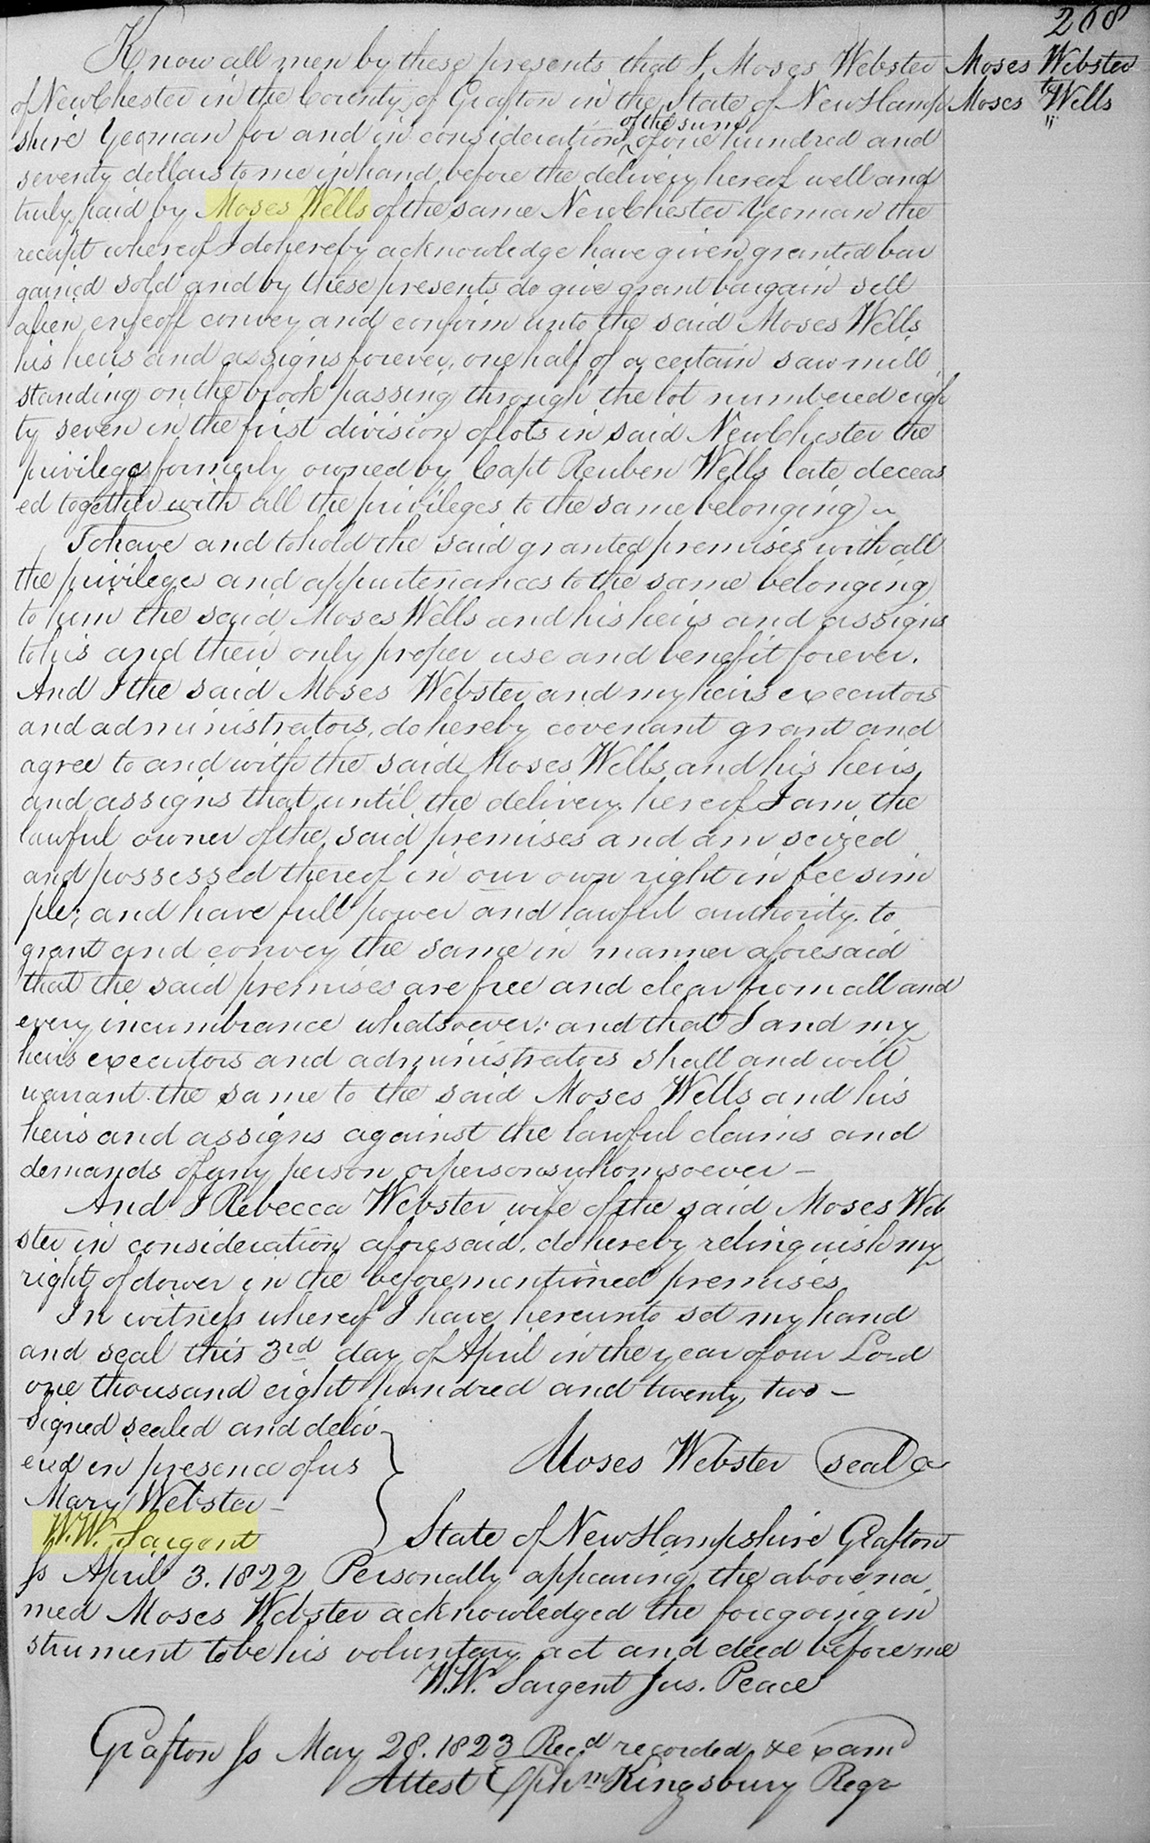 268
Know all men by these presents that I Moses Webster
Moses Webster
to
Moses Wells
of New Chester in the County of Grafton in the State of New Hamp
shire Yeoman for and in consideration of the sum of one hundred and
seventy dollars to me in hand before the delivery hereof well and
truly paid by Moses Wells of the same New Chester Yeoman the
receipt whereof I do hereby acknowledge have given granted bar
gained sold and by these presents do give grant bargain sell
alien enfeoff convey and confirm unto the said Moses Wells
his heirs and assigns forever, one half of a certain saw mill
standing on the brook passing through the lot numbered eigh
ty seven in the first division of lots in said New Chester the
privilege formerly owned by Capt Reuben Wells late deceas
ed together with all the privileges to the same belonging
To have and to hold the said granted premises with all
the privileges and appurtenances to the same belonging
to him the said Moses Wells and his heirs and assigns
to his and their only proper use and benefit forever.
And I the said Moses Webster and my heirs executors
and administrators, do hereby covenant grant and
agree to and with the said Moses Wells and his heirs
and assigns that until the delivery hereof I am the
lawful owner of the said premises and am seized
and possessed thereof in our own right in fee sim
ple; and have full power and lawful authority to
grant and convey the same in manner aforesaid
that the said premises are free and clear from all and
every incumbrance whatsoever: and that I and my
heirs executors and administrators shall and will
warrant the same to the said Moses Wells and his
heirs and assigns against the lawful claims and
demands of any person or persons whomsoever —
And I Rebecca Webster wife of the said Moses Web
ster in consideration aforesaid, do hereby relinquish my
right of dower in the beforementioned premises
In witness whereof I have hereunto set my hand
and seal this 3rd day of April in the year of our Lord
one thousand eight hundred and twenty two —
Signed sealed and deliv-
ered in presence of us
Moses Webster seal
Mary Webster —
W.W. Sargent
State of New Hampshire Grafton
ss April 3. 1822 Personally appearing the above na
med Moses Webster acknowledged the foregoing in
strument to be his voluntary act and deed before me
W.W. Sargent Jus. Peace
Grafton ss May 28. 1823 Recd recorded & examd
Attest Ephm Kingsbury Regr